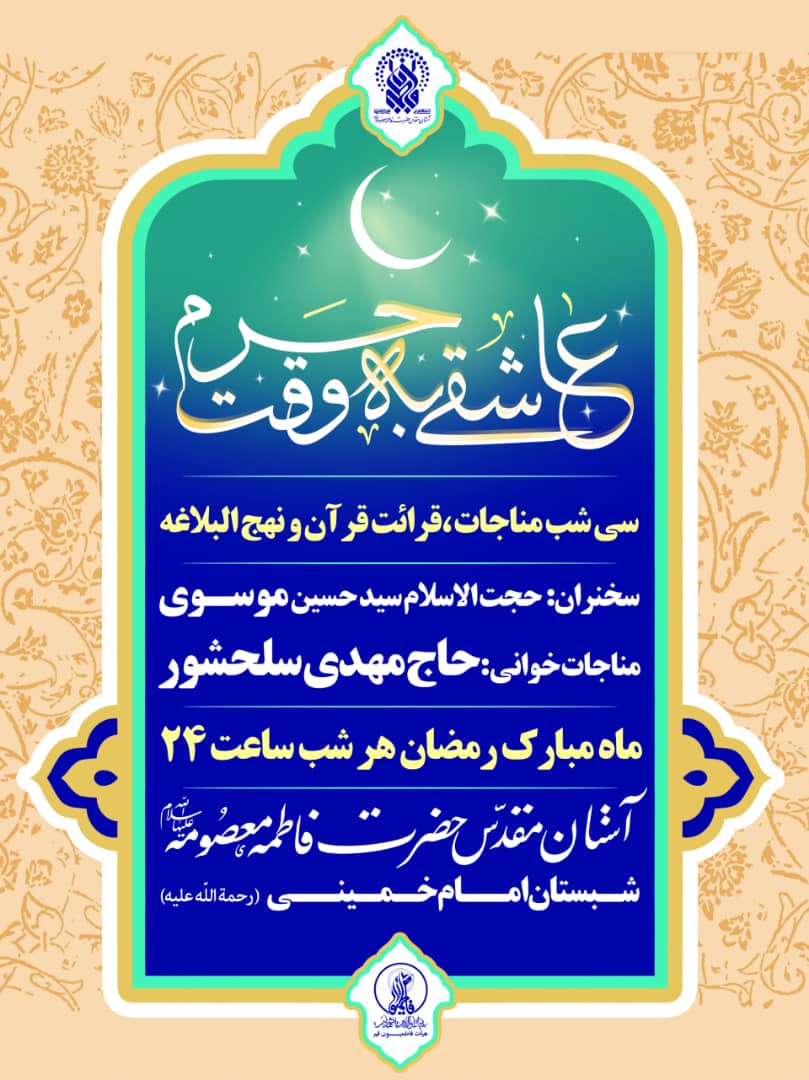 آستان مقدس حضرت فاطمه معصومه
عاشقی به وقت حرم
سی شب مناجات، قرائت قرآن و نهج البلاغه
سخنران: حجت الاسلام سید حسین موسوی
مناجات خوانی: حاج مهدی سلحشور
ماه مبارک رمضان هر شب ساعت ۲۴
آستان مقدّس حضرت فاطمه معصومه علیهاالسلام
شبستان امام خمینی (رحمة الله علیه)
هیأت فاطمیون قم